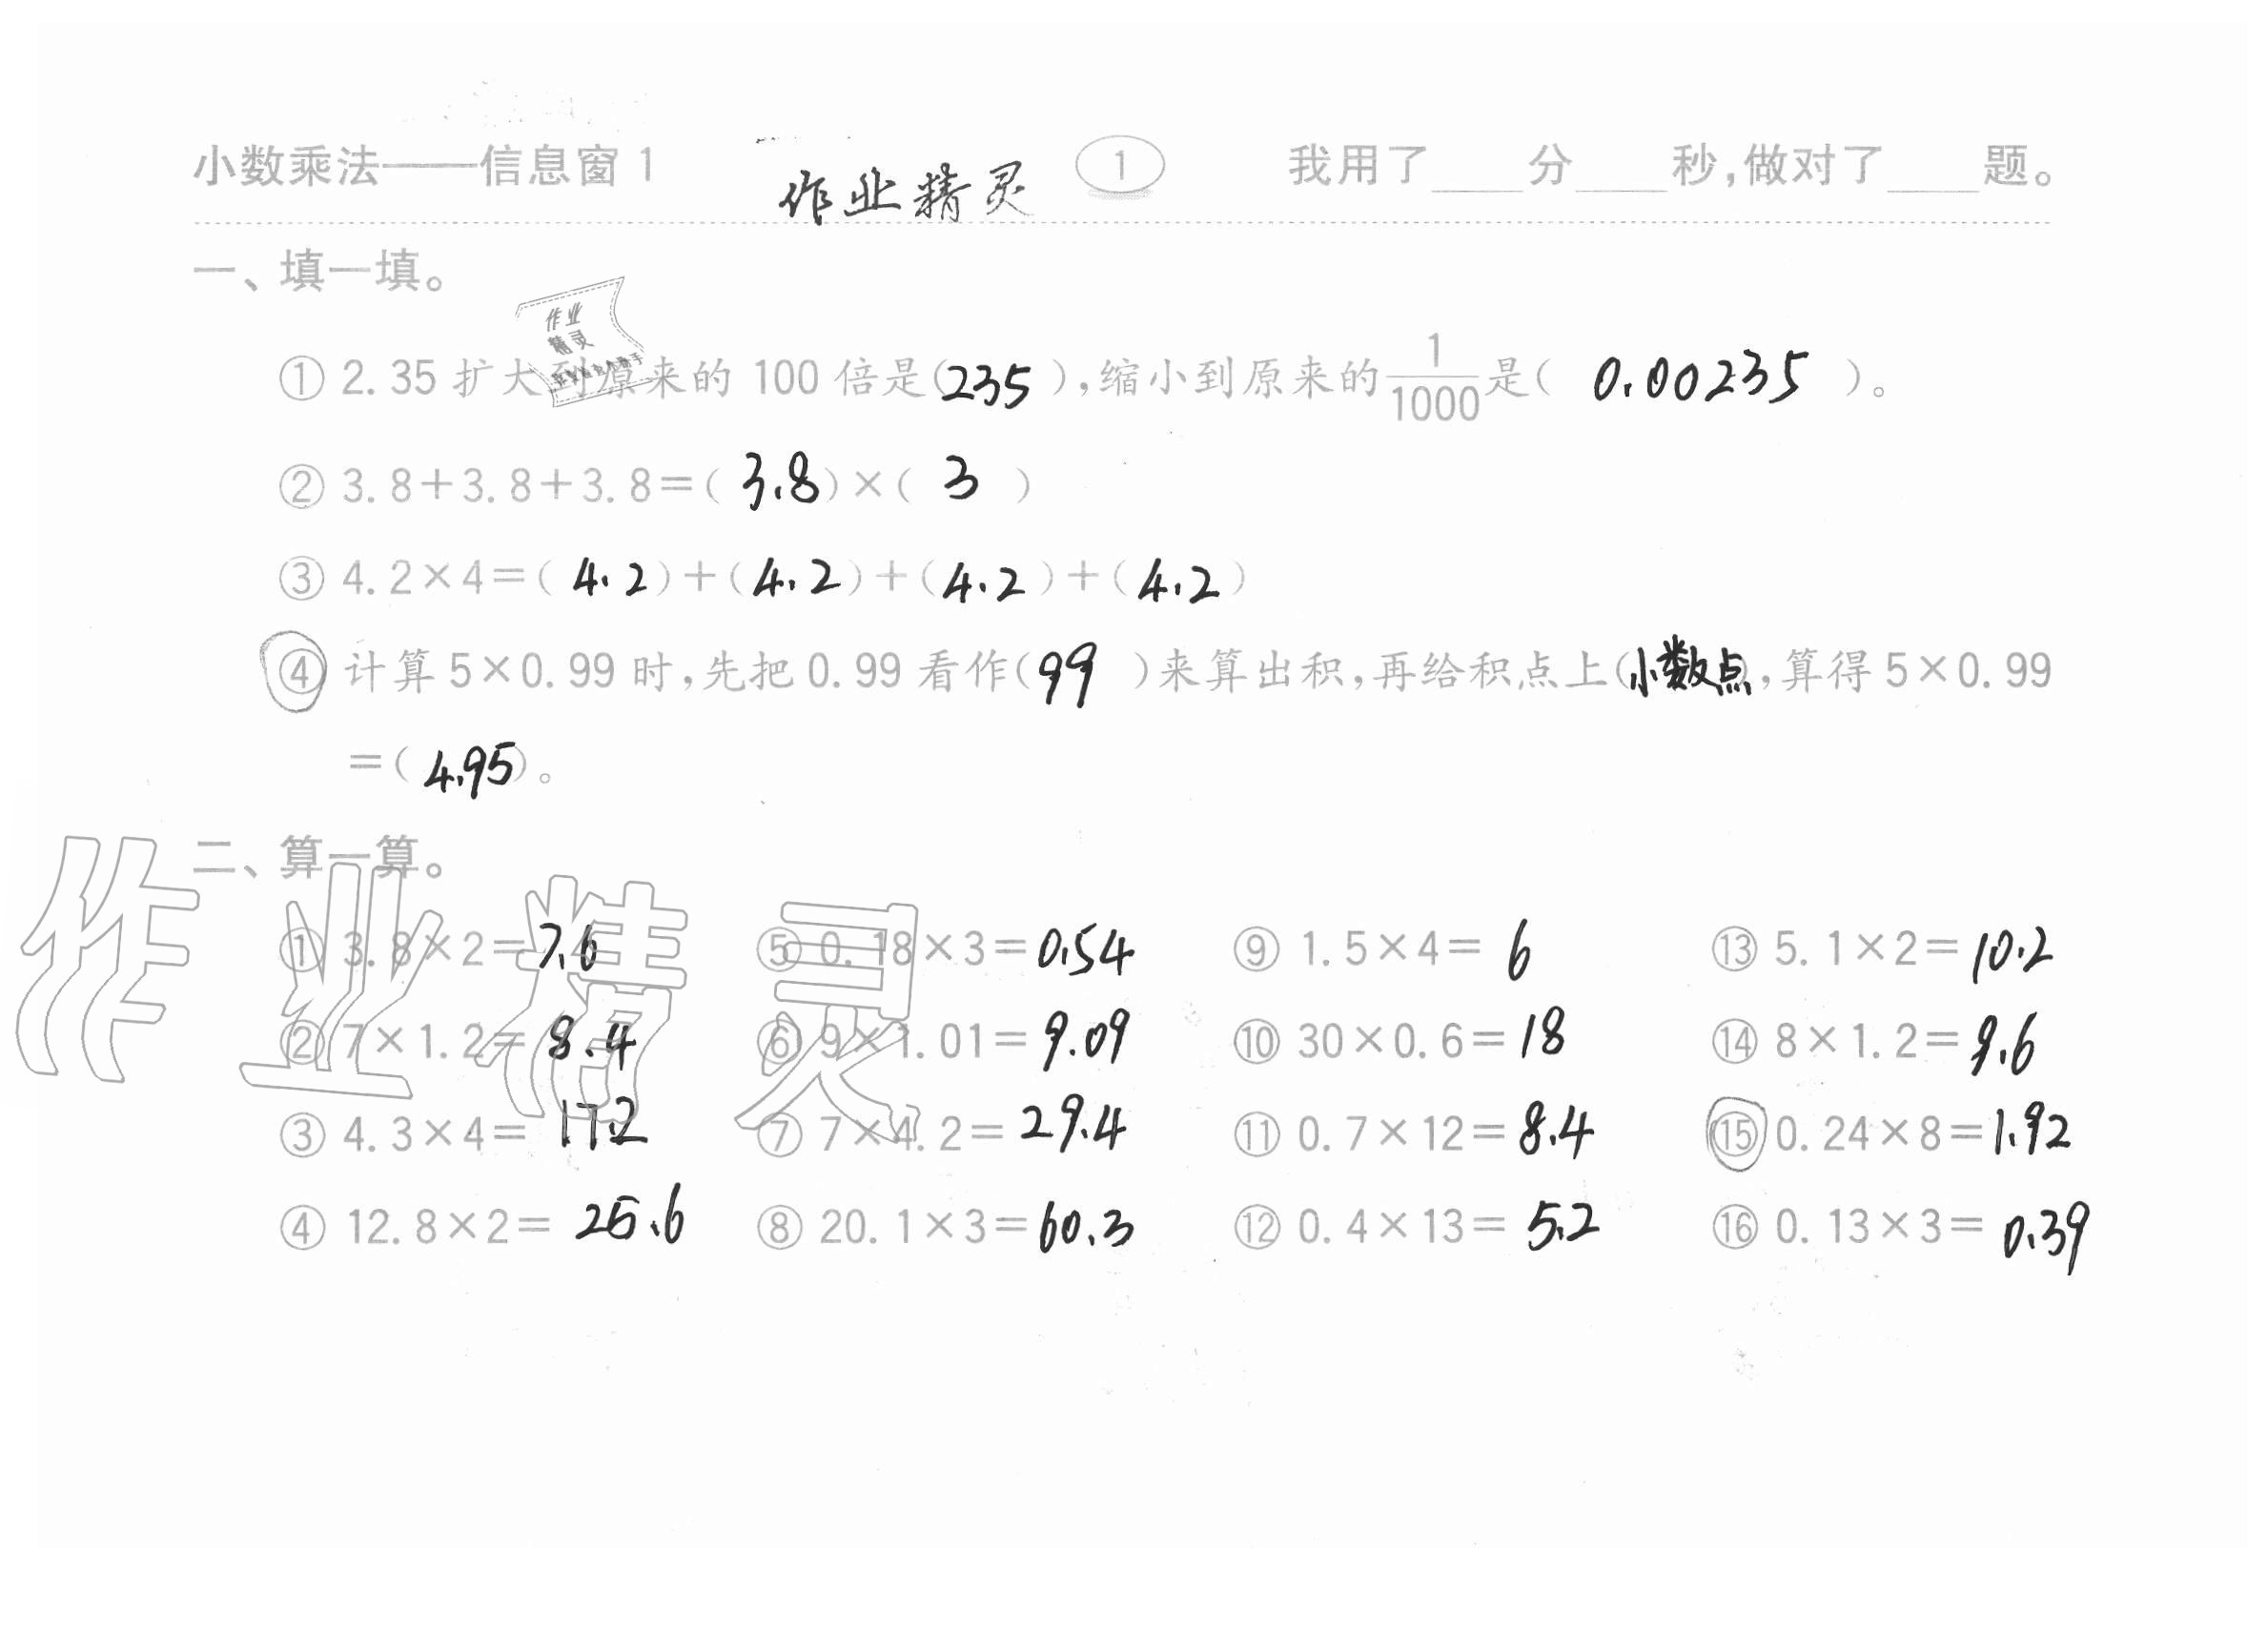 小数乘法——信息窗1 作业精灵 1 我用了____分____秒,做对了____题。
一、填一填。
作业
精灵
①2.35扩大到原来的100倍是(235),缩小到原来的1/1000是(0.00235)。
②3.8+3.8+3.8=(3.8)×(3)
③4.2×4=(4.2)+(4.2)+(4.2)+(4.2)
④计算5×0.99时,先把0.99看作(99)来算出积,再给积点上(小数点),算得5×0.99
=(4.95)。
二、算一算。
作业精灵
①3.8×2=7.6 ⑤0.18×3=0.54 ⑨1.5×4=6 ⑬5.1×2=10.2
②7×1.2=8.4 ⑥9×1.01=9.09 ⑩30×0.6=18 ⑭8×1.2=9.6
③4.3×4=17.2 ⑦7×4.2=29.4 ⑪0.7×12=8.4 ⑮0.24×8=1.92
④12.8×2=25.6 ⑧20.1×3=60.3 ⑫0.4×13=5.2 ⑯0.13×3=0.39